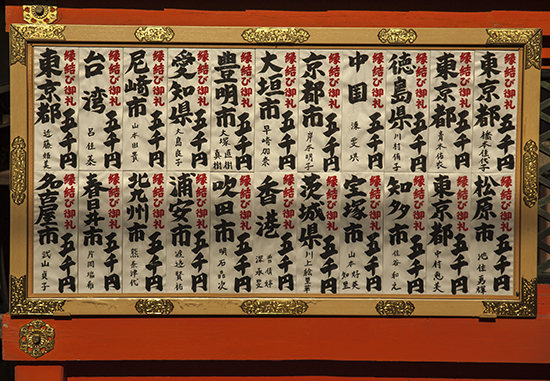 縁結び御礼
東京都 五千円
縁結び御礼
東京都 五千円
青木佑衣
縁結び御礼
徳島県 五千円
川村侑子
縁結び御礼
中国 五千円
縁結び御礼
京都市 五千円
岸本明子
縁結び御礼
大垣市 五千円
縁結び御礼
豊明市 五千円
大塚直樹
真樹
縁結び御礼
愛知県 五千円
大島直子
縁結び御礼
尼崎市 五千円
山本由貴
縁結び御礼
台湾 五千円
縁結び御礼
東京都 五千円
縁結び御礼
松原市 五千円
縁結び御礼
東京都 五千円
縁結び御礼
知多市 五千円
縁結び御礼
宝塚市 五千円
山本好美
知里
縁結び御礼
茨城県 五千円
縁結び御礼
香港 五千円
縁結び御礼
吹田市 五千円
明石昌次
縁結び御礼
浦安市 五千円
渡辺賢祐
縁結び御礼
北九州市 五千円
縁結び御礼
春日井市 五千円
片岡瑞希
縁結び御礼
名古屋市 五千円
武山貞子